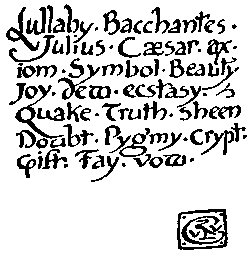 Lullaby · Bacchantes ·
Julius · Cæsar · ax-
iom · Symbol · Beauty
Joy · Dew · ecstasy ·
Quake · Truth · Sheen
Doubt · Pygmy · Crypt ·
Gift · Fay · Vow ·